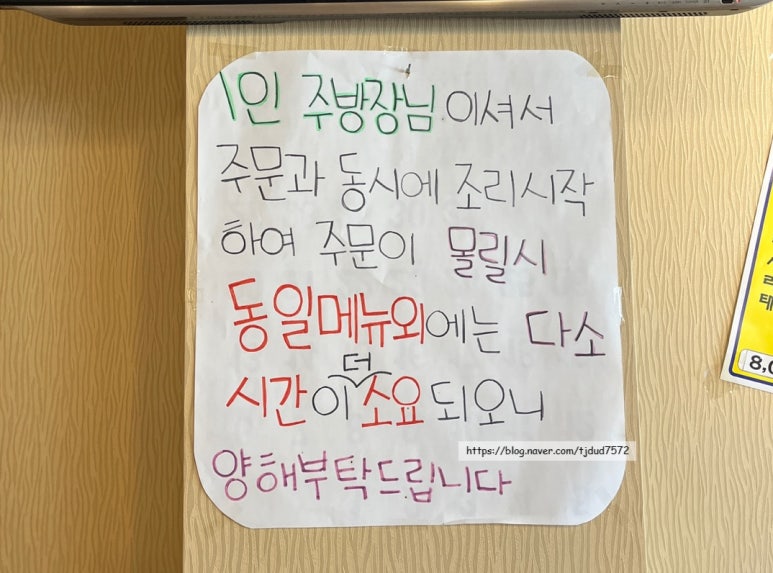 1인 주방장님 이셔서
주문과 동시에 조리시작
하여 주문이 몰릴시
동일메뉴외에는 다소
시간이 더 소요 되오니
양해부탁드립니다
https://blog.naver.com/tjdud7572